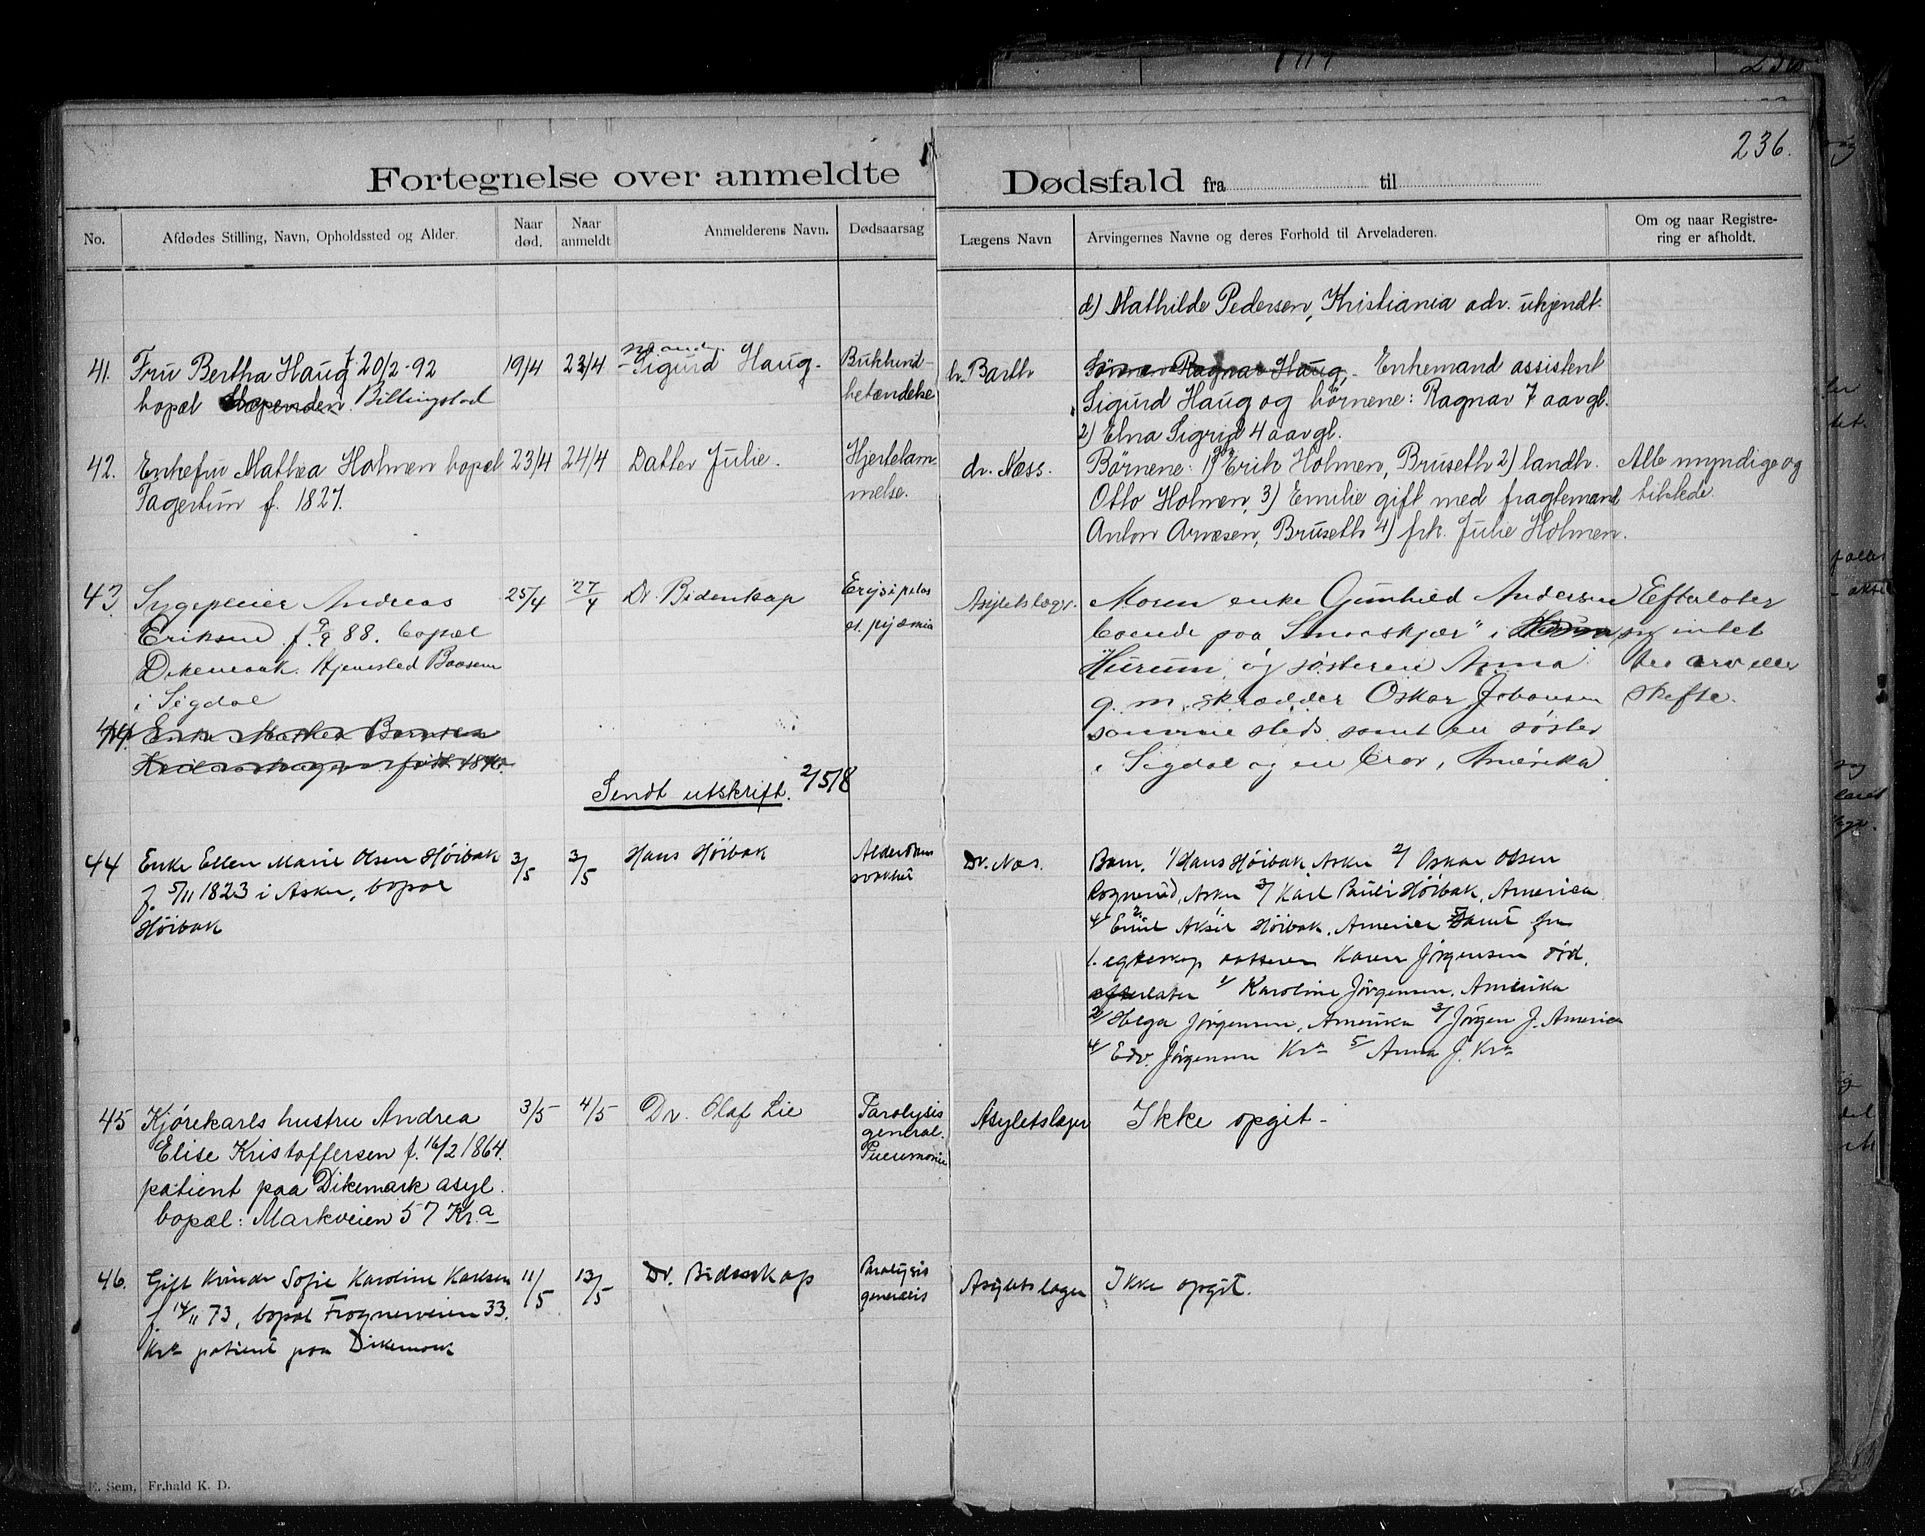 236.
Fortegnelse over anmeldte Dødsfald fra til
No.
Afdødes Stilling, Navn, Opholdssted og Alder.
Naar død.
Naar anmeldt
Anmelderens Navn.
Dødsaarsag
Lægens Navn
Arvingernes Navne og deres Forhold til Arveladeren.
Om og naar Registrering er afholdt.
d) Mathilde Pedersen, Kristiania adr. ukjendt.
41. Fru Bertha Haug f 20/2-92
bopæl Slependen Billingstad
19/4
23/4
Sigurd Haug.
Bukhindebetændelse
Barth
Sönnen Ragnar Haug, Enkemand assistent
Sigurd Haug og börnene: Ragnar 7 aar gl.
2) Elna Sigrid 4 aar gl.
42. Enkefru Mathea Holmen bopæl
Fagertun f. 1827.
23/4
24/4
Datter Julie.
Hjertelammelse.
dr. Næss.
Börnene: 1) Erik Holmen, Bruseth 2) landh.
Otto Holmen, 3) Emilie gift med fragtemand
Anton Arnesen, Bruseth 4) frk. Julie Holmen.
Alle myndige og
tilstede.
43 Sygepleier Andreas
Eriksen f. 9/9 88. bopæl
Dikemark. Hjemsted Baasum
i Sigdal
25/4
27/4
Dr. Bidenkap
Erysipelas
et. pyæmia
Asyletslæge.
Moren enke Gunhild Andersen
boende paa Smaaskjær" i
Hurum, og søsteren Anna
g. m. skrædder Oskar Johansen
samme sted samt en søster
i Sigdal og en bror i Amerika
Efterlater
sig intet
til arv eller
skifte.
44. Enke
født 1840.
Sendt utskrift. 2/5 18
44 Enke Ellen Marie Olsen Høibak
f. 5/11 1823 i Asker, bopæl
Høibak
3/5
3/5
Hans Høibak
Alderdoms
svakhet
Dr. Næs.
Barn, 1/ Hans Høibak Asker 2/ Oskar Olsen
Rognerud, Asker 3/ Karl Pauli Høibak, America
4/ Emil Aksil Høibak, America samt fra
1. egteskap datteren Karen Jørgensen død.
efterlater 1/ Karoline Jørgensen, Amerika
2/ Helga Jørgensen, Amerika 3/ Jørgen J. America
4/ Edv. Jørgensen Kra 5/ Anna J. Kra
45 Kjørekarls hustru Andrea
Elise Kristoffersen f. 16/2 1864.
patient paa Dikemark asyl.
bopæl: Markveien 57 Kr.a
3/5
4/5
Dr. Olaf Lie
Paralysis
general.
Pneumonie
Asyletslæger
Ikke opgit.
46. Gift kvinde Sofie Karoline Karlsen
f. 14/11 73, bopæl Frognerveien 33.
Kra patient paa Dikemark
11/5
13/5
Dr. Bidenkap
Paralysis
generalis
Asyletslæger
Ikke opgit.
E. Sem, Fr.hald K. D.